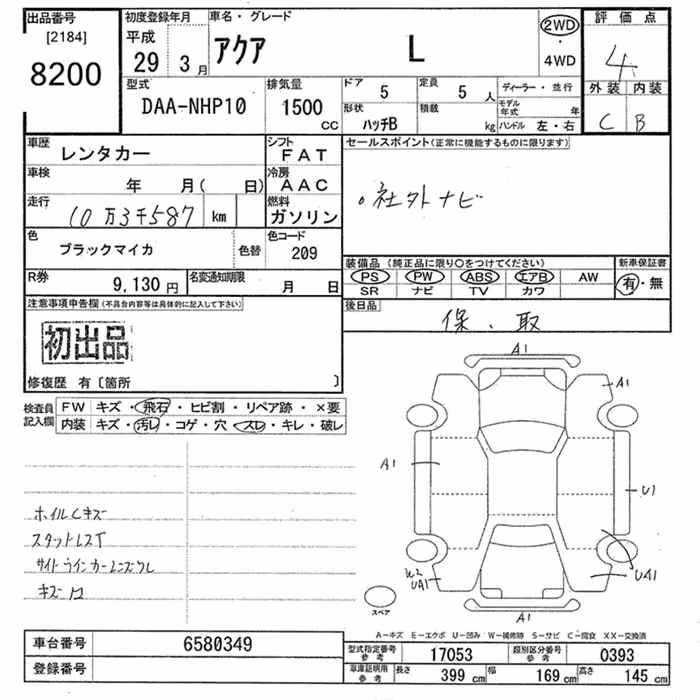 出品番号
[2184]
8200
初度登録年月
平成
29 3月
車名・グレード
アクア L
2WD
・
4WD
評価点
4
外装 内装
C B
型式
DAA-NHP10
排気量
1500
CC
ドア 5
定員 5 人
形状 ハッチB
積載 kg
ディーラー・並行
モデル年式 年
ハンドル 左・右
車歴
レンタカー
シフト
FAT
車検
年 月( 日)
冷房
AAC
走行
10万3千587 km
燃料
ガソリン
色
ブラックマイカ
色替
色コード
209
R券
9,130円
名変通知期限
月 日
セールスポイント(正常に機能するものに限ります)
。社外ナビ
装備品 (純正品に限り○をつけてください)
PS PW ABS エアB AW
SR ナビ TV カワ
新車保証書
有・無
後日品
保・取
注意事項申告欄(不具合内容等は具体的に記入して下さい)
初出品
修復歴 有〔箇所 〕
検査員
記入欄
FW キズ・飛石・ヒビ割・リペア跡・×要
内装 キズ・汚レ・コゲ・穴・スレ・キレ・破レ
ホイルCキズ
スタットレスT
サイドウインカーレンズワレ
キズ
A1
A1
A1
U1
UA1
W2
UA1
A1
スペア
A-キズ E-エクボ U-凹み W-補修跡 S-サビ C-腐食 XX-交換済
車台番号
6580349
登録番号
型式指定番号
参考
17053
類別区分番号
参考
0393
車庫証明用
参考
長さ 399 cm
幅 169 cm
高さ 145 cm